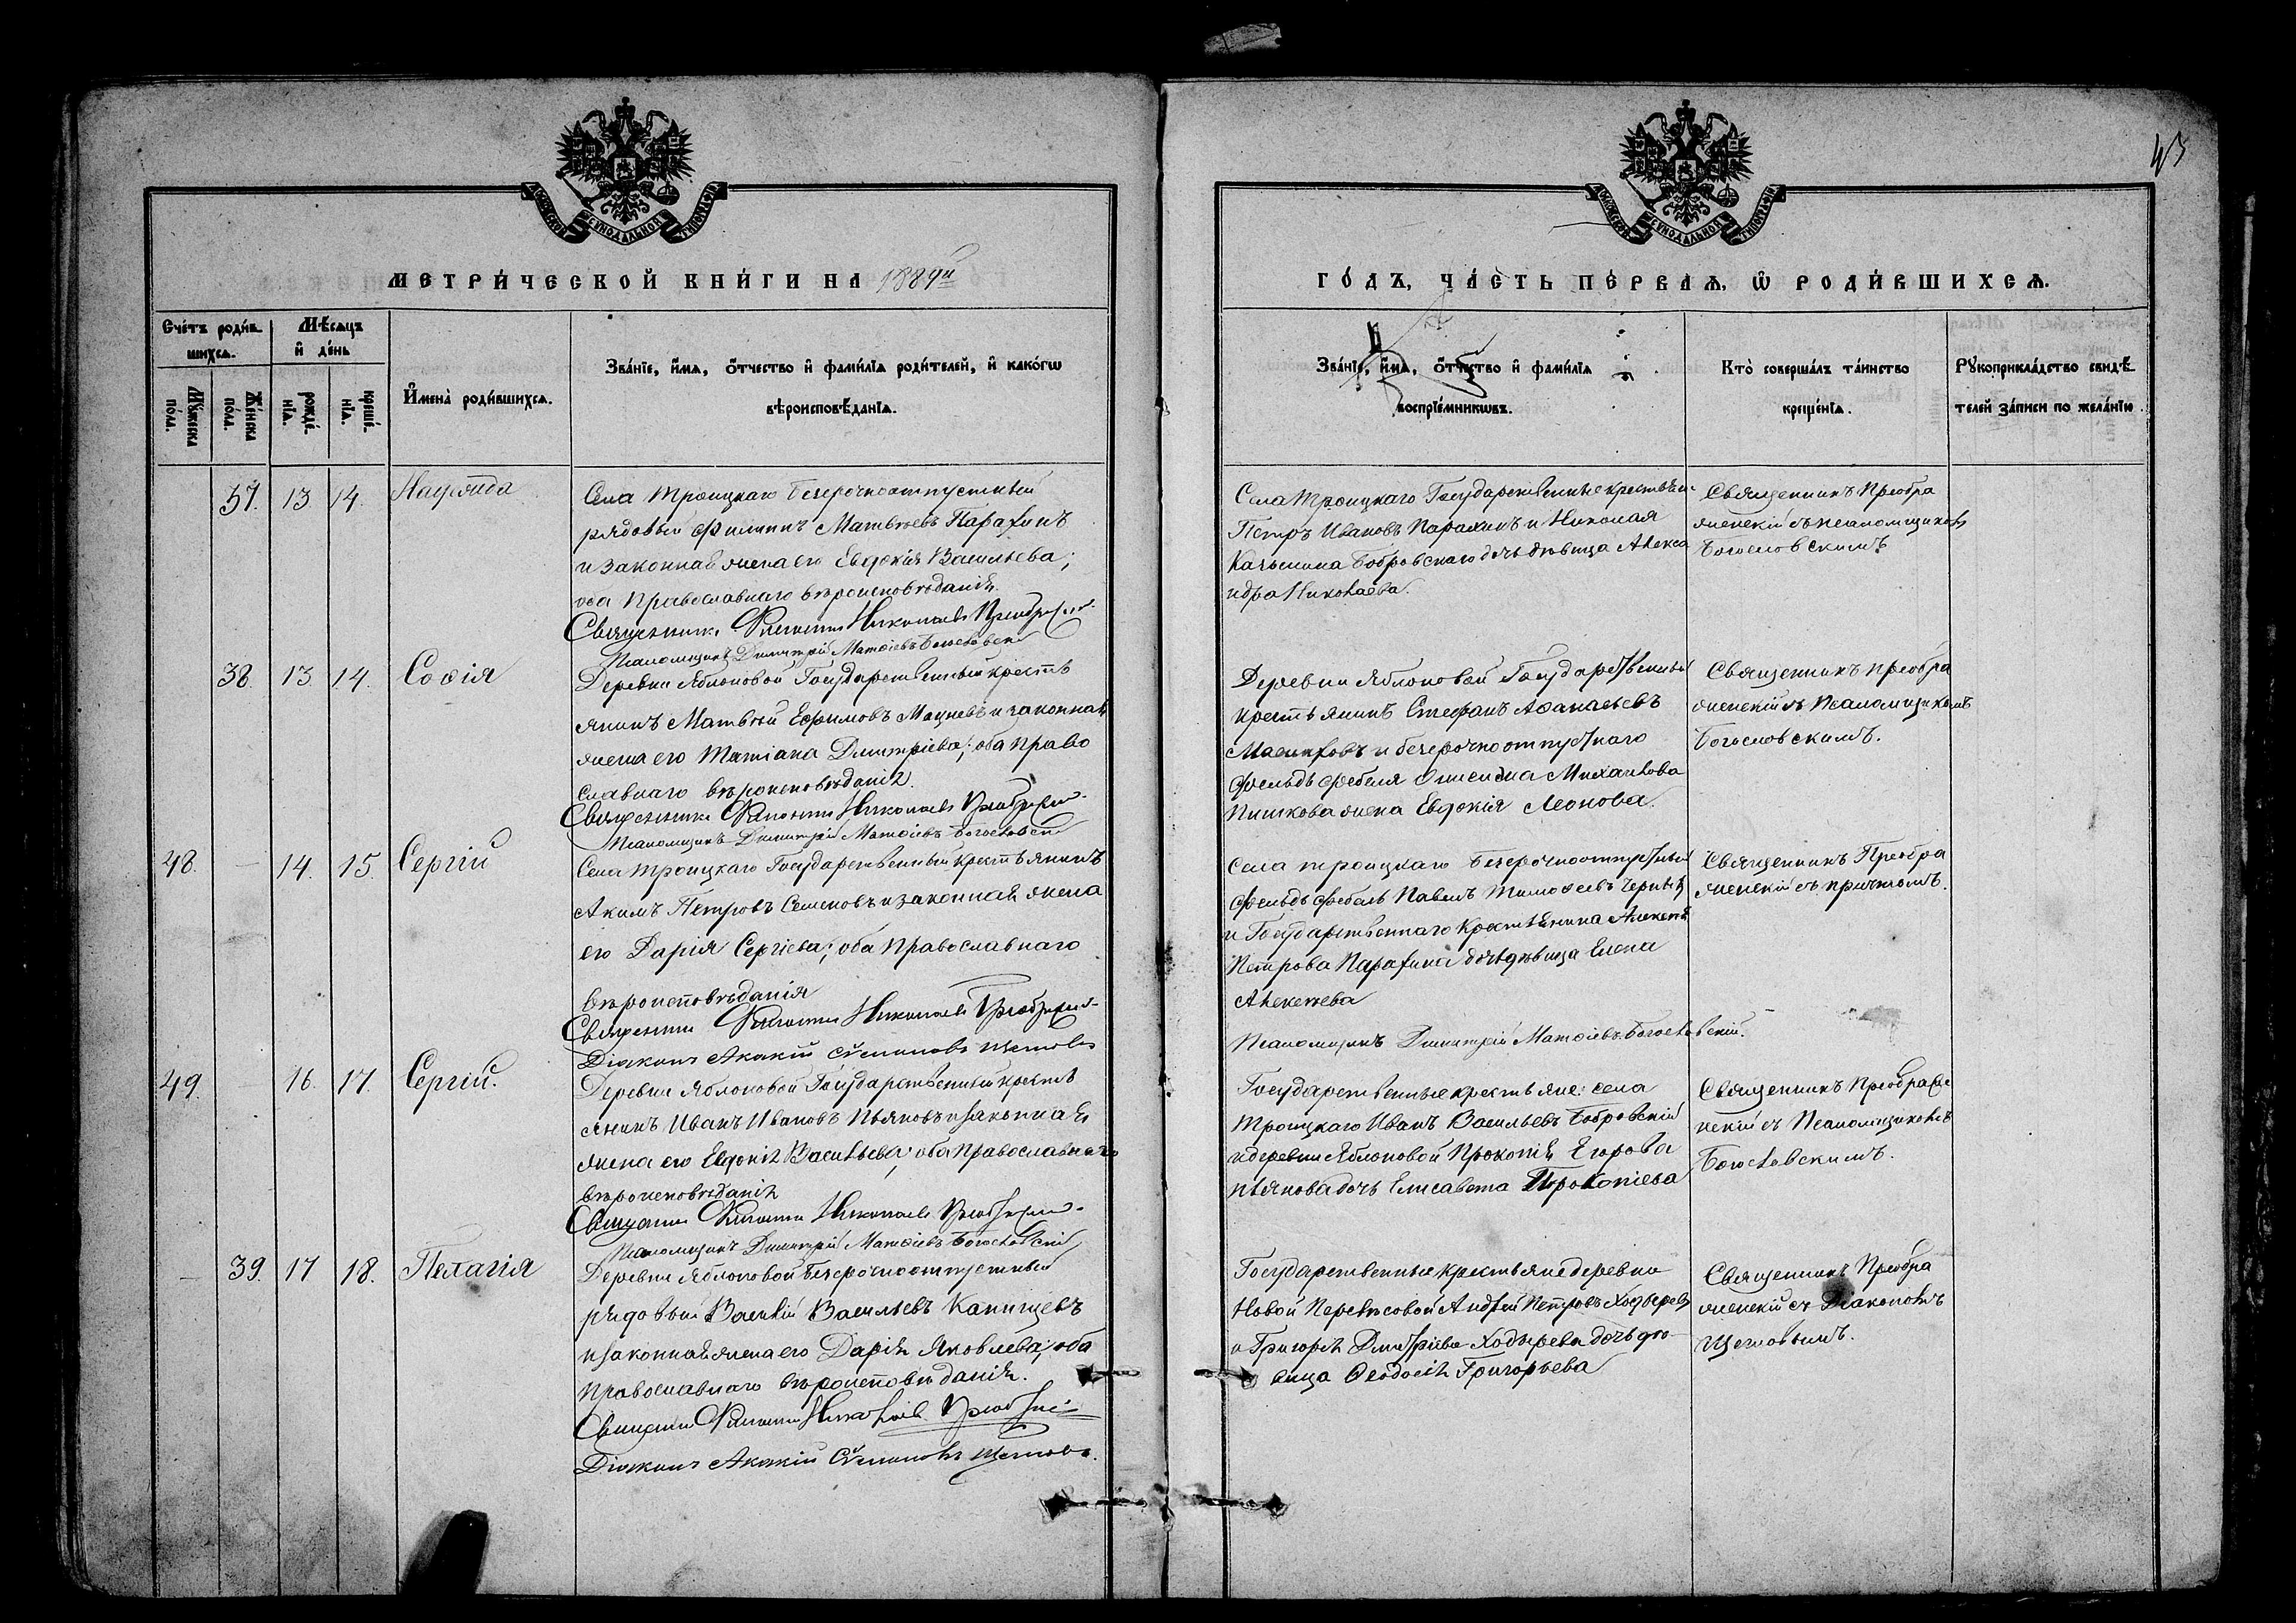 43
МОСКОВСКОЙ СУНОДАЛЬНОЙ ТИПОГРАФІИ
МОСКОВСКОЙ СУНОДАЛЬНОЙ ТИПОГРАФІИ
МЕТРИ́ЧЕСКОЙ КНИ́ГИ НА 1889й
ГО́ДЪ, ЧА́СТЬ ПЕ́РВАѦ, Ѡ҆ РОДИ́ВШИХСѦ.
Сче́тъ роди́в-
шихсѧ.
Мѣ́сѧцъ
и҆ де́нь
Мꙋ́жеска
по́ла.
Же́нска
по́ла.
рожде́-
нїѧ.
креще́-
нїѧ.
И҆мена̀ роди́вшихсѧ.
Зва́нїе, и҆́мѧ, ѻ҆́тчество и҆ фамѝлїѧ роди́телей, и҆ како́гѡ
вѣроисповѣ́данїѧ.
Зва́нїе, и҆́мѧ, ѻ҆́тчество и҆ фамѝлїѧ
воспрїе́мникѡвъ.
Кто̀ соверша́лъ та́инство
креще́нїѧ.
Рꙋкоприкла́дство свидѣ́-
телей за́писи по жела́нїю
37. 13. 14.
Села Троицкаго безсрочноотпустный
рядовый Филиппъ Матвѣевъ Парахинъ
и законная жена его Евдокія Васильева;
оба Православнаго вѣроисповѣданія.
Священникъ Николаевъ Преображен.
Псаломщикъ Димитрій Матѳіевъ Богословскій
Села Троицкаго Государственные крестьян:
Петръ Ивановъ Парахинъ и Николая
Бобровскаго дочь дѣвица Алекса
ндра Николаева.
Священникъ Преобра
женскій съ псаломщикомъ
Богословскимъ
38. 13. 14. Софія
Деревни Яблоновой Государственный кресть
янинъ Матвѣй Ефимовъ Мацневъ и законная
жена его Татіана Дмитріева; оба Право
славнаго вѣроисповѣданія.
Священникъ Николаевъ Преображен.
Псаломщикъ Димитрій Матѳіевъ Богословскій
Деревни Яблоновой Государственный
крестьянинъ Стефанъ Аѳанасьевъ
и безсрочноотпускнаго
фельдъфебеля Михаилова
Пишкова жена Евдокія Леонова.
Священникъ Преобра
женскій съ Псаломщикомъ
Богословскимъ.
48. - 14. 15. Сергій
Села Троицкаго Государственный крестьянинъ
Акимъ Петровъ Семеновъ и законная жена
его Дарія Сергіева; оба Православнаго
вѣроисповѣданія
Священникъ Николаевъ Преображен-
Діаконъ Акакій Стефановъ Щегловъ
Села Троицкаго безсрочноотпустный
фельдъфебель Павелъ Тимоѳеевъ
и Государственнаго крестьянина Алексѣя
Петрова Парахина дочь дѣвица Елена
Алексѣева
Псаломщикъ Димитрій Матѳіевъ Богословскій.
Священникъ Преобра
женскій съ причтомъ.
49. 16. 17. Сергій.
Деревни Яблоновой Государственный кресть
янинъ Иванъ Ивановъ Пьяновъ и законная
жена его Евдокія Васильева; оба Православнаго
вѣроисповѣданія
Священникъ Николаевъ Преображен.
Псаломщикъ Димитрій Матѳіевъ Богословскій
Государственные крестьяне: села
Троицкаго Иванъ Васильевъ Бобровскій
и деревни Яблоновой Прокопія Егорова
Пьянова дочь Елисавета Прокопіева
Священникъ Преображе
нскій съ Псаломщикомъ
Богословскимъ.
- 39. 17 18. Пелагія
Деревни Яблоновой безсрочноотпустный
рядовый Василій Васильевъ Капищевъ
и законная жена его Дарія Яковлева; оба
Православнаго вѣроисповѣданія.
Священникъ Николаевъ
Діаконъ Акакій Стефановъ Щегловъ.
Государственные крестьяне деревни
Новой Андрей Петровъ Ходыревъ
и Григорія Дмитріева Ходырева дочь дѣ-
вица Ѳеодосія Григорьева
Священникъ Преобра
женскій съ Діакономъ
Щегловымъ.